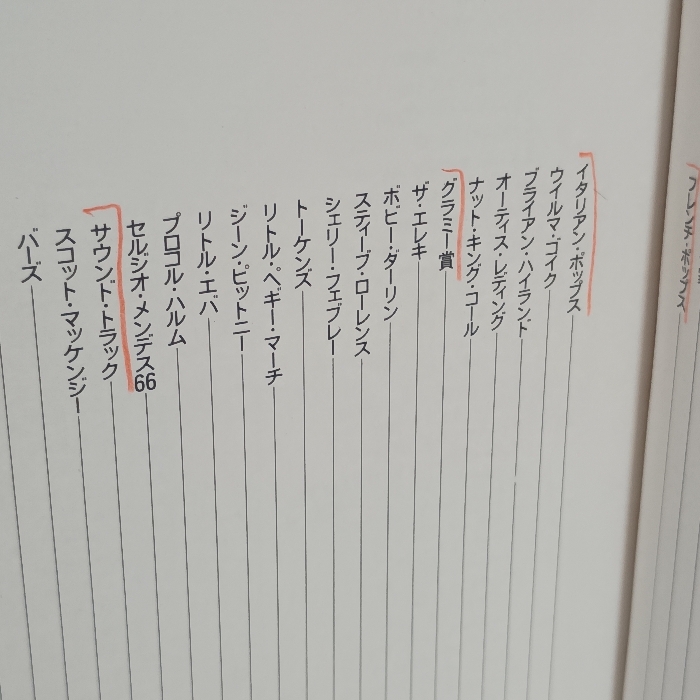 フレンチ・ポップス
イタリアン・ポップス
ウイルマ・ゴイク
ブライアン・ハイランド
オーティス・レディング
ナット・キング・コール
グラミー賞
ザ・エレキ
ボビー・ダーリン
スティーブ・ローレンス
シェリー・フェブレー
トーケンズ
リトル・ペギー・マーチ
ジーン・ピットニー
リトル・エバ
プロコル・ハルム
セルジオ・メンデス66
サウンド・トラック
スコット・マッケンジー
バーズ